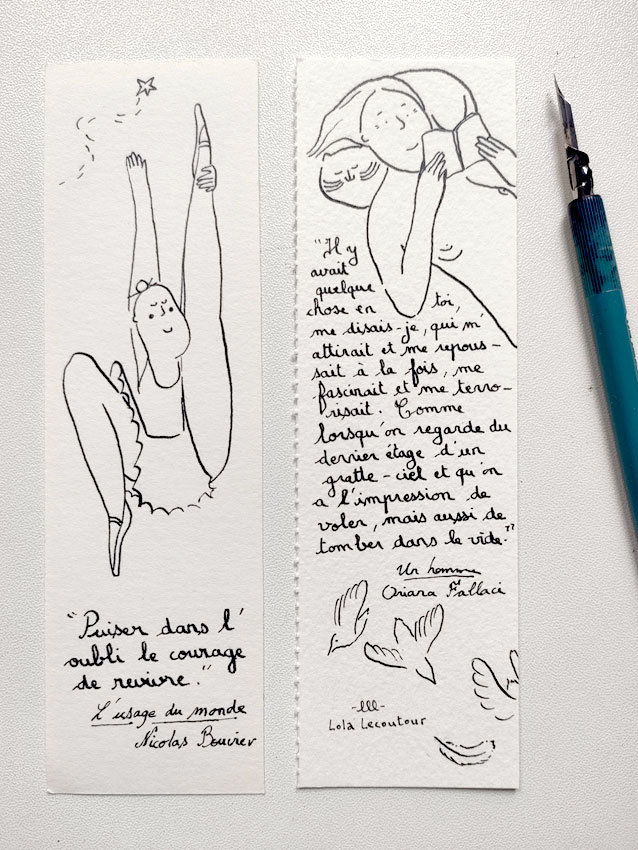 "Puiser dans l'
oubli le courage
de revivre."
L'usage du monde
Nicolas Bouvier
"Il y
avait
quelque
chose en toi,
me disais-je, qui m'
attirait et me repous-
sait à la fois, me
fascinait et me terro-
risait. Comme
lorsqu'on regarde du
dernier étage d'un
gratte-ciel et qu'on
a l'impression de
voler, mais aussi de
tomber dans le vide."
Un homme
Oriana Fallaci
-lll-
Lola Lecoutour